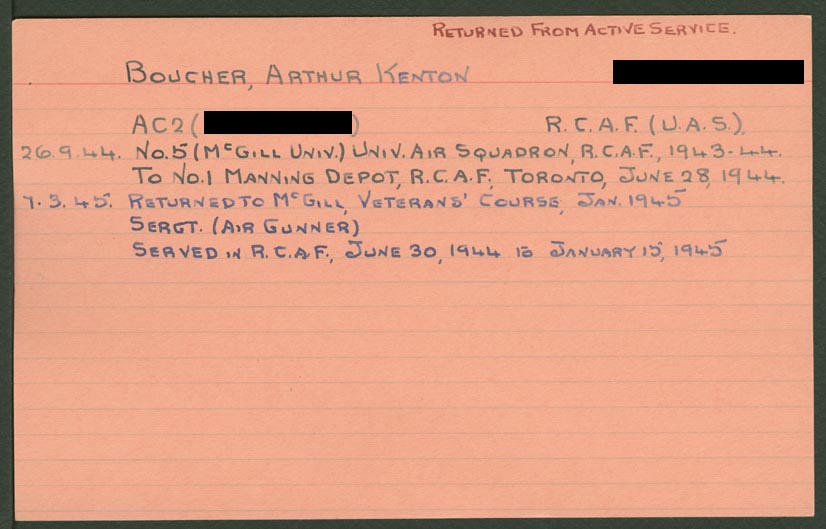 RETURNED FROM ACTIVE SERVICE.
BOUCHER, ARTHUR KENTON
AC2 ( ) R.C.A.F. (U.A.S.)
26.9.44. No.5 (McGILL UNIV.) UNIV. AIR SQUADRON, R.C.A.F., 1943-44.
TO No.1 MANNING DEPOT, R.C.A.F., TORONTO, JUNE 28, 1944.
7.3.45. RETURNED TO McGILL, VETERANS' COURSE, JAN. 1945
SERGT. (AIR GUNNER)
SERVED IN R.C.A.F., JUNE 30, 1944 to JANUARY 15, 1945